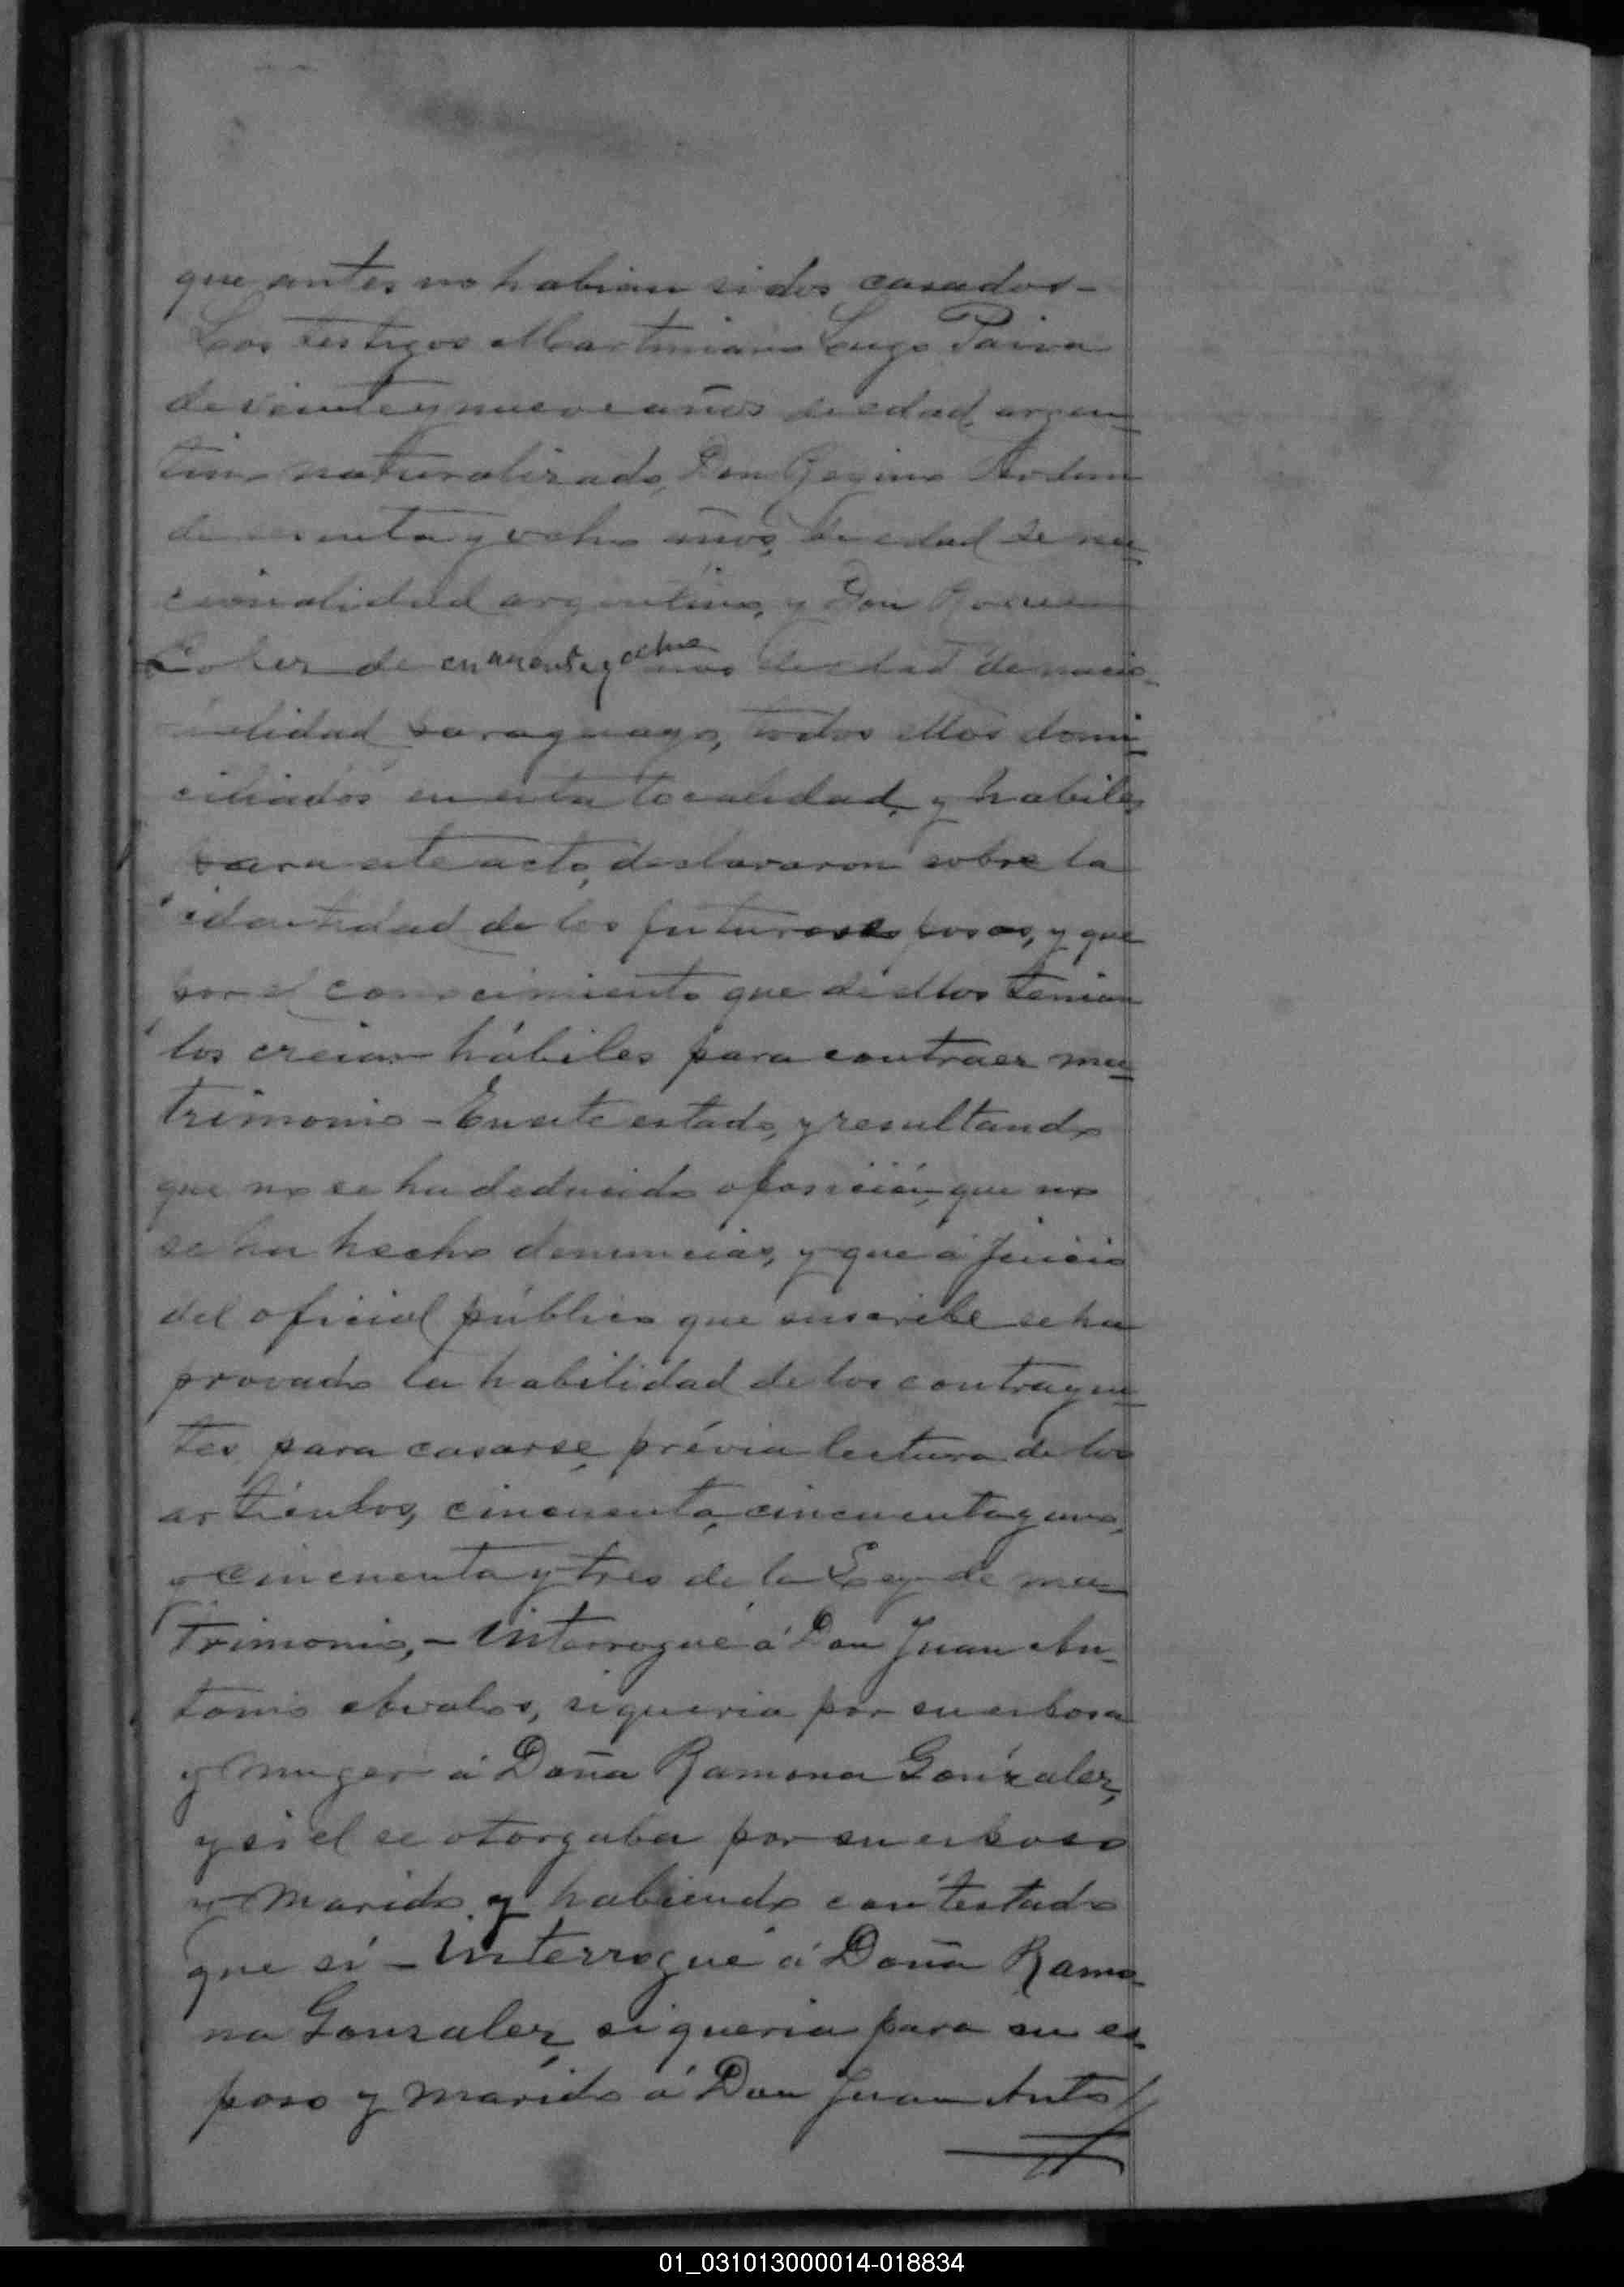 que antes no habian sidos casados-
Los testigos Martiniano Lugo Paiva
de veinte y nueve años de edad, argen=
tino naturalizado, Don
de y ocho años, de edad de na=
cionalidad argentino, y Don
de cuarenta y ocho años de edad de nacio-
nalidad paraguayo, todos ellos domi=
ciliados en esta localidad, y habiles
para este acto, declararon sobre la
identidad de los futuros esposos, y que
por el conocimiento que de ellos tenian
los creian hábiles para contraer ma=
trimonio - En este estado, y resultando
que no se ha deducido oposición, que no
se ha hecho denuncias, y que á juicio
del oficial público que suscribe se ha
provado la habilidad de los contrayen=
tes para casarse, prévia lectura de los
artículos, cincuenta, cincuenta y uno,
y cincuenta y tres de la Ley de ma=
trimonio, - interrogué á Don Juan An-
tonio Avalos, si queria por su esposa
y muger á Doña Ramona González,
y si el se otorgaba por su esposo
y marido, y habiendo contestado
que sí - interrogué á Doña Ramo-
na Gonzalez, si queria para su es-
poso y marido á Don Juan Anto
01_031013000014-018834